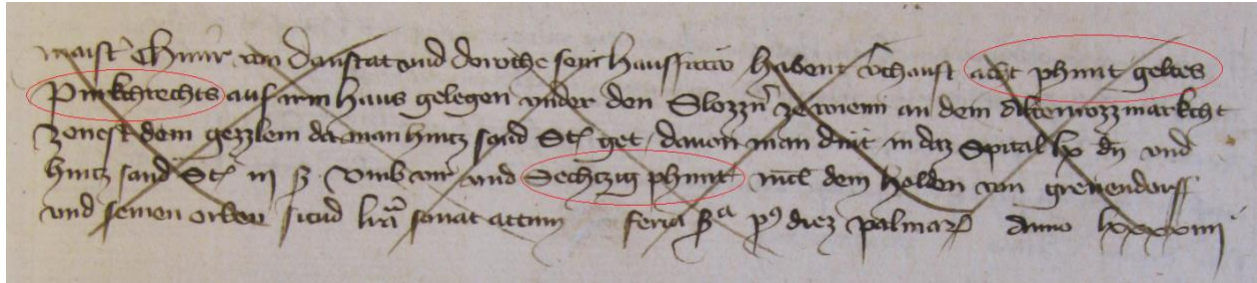 maister Chunr von danstat vnd dorothe sein Hausfraw habent vchauft acht phunt geltes
Purkchrechts auf irm Haus gelegen vnder den Slozzern ze wienn an dem Altenrozzmarkcht
Zenest dem gezzlein da man hintz sand St get dauon man dint in daz Spital lx dn vnd
hintz sand St iij ß vmb vir vnd Sechtzig phunt dem Holden von greuendorff
vnd seinen erben sicud lra sonat actum feria 2a diez palmar Anno lxxxxiiij